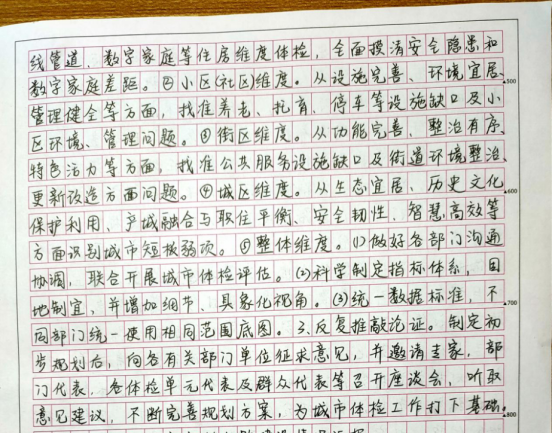 线管道、数字家庭等住房维度体检，全面摸清安全隐患和
数字家庭差距。②小区(社区)维度。从设施完善、环境宜居、
500
管理健全等方面，找准养老、托育、停车等设施缺口及小
区环境、管理问题。③街区维度。从功能完善、整治有序、
特色活力等方面，找准公共服务设施缺口及街道环境整治、
更新改造方面问题。④城区维度。从生态宜居、历史文化
600
保护利用、产城融合与职住平衡、安全韧性、智慧高效等
方面识别城市短板弱项。⑤整体维度。(1)做好各部门沟通
协调，联合开展城市体检评估。(2)科学制定指标体系，因
地制宜，并增加细节、具象化视角。(3)统一数据标准，不
700
同部门统一使用相同范围底图。3、反复推敲论证。制定初
步规划后，向各有关部门单位征求意见，并邀请专家、部
门代表、各体检单元代表及群众代表等召开座谈会，听取
意见建议，不断完善规划方案，为城市体检工作打下基础。
800